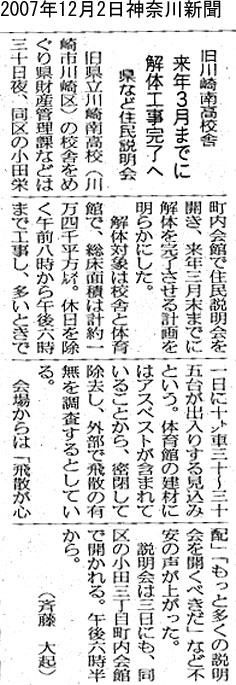 2007年12月2日神奈川新聞
旧川崎南高校舎
来年3月までに
解体工事完了へ
県など住民説明会
旧県立川崎南高校（川
崎市川崎区）の校舎をめ
ぐり県財産管理課などは
三十日夜、同区の小田栄
町内会館で住民説明会を
開き、来年三月末までに
解体を完了させる計画を
明らかにした。
解体対象は校舎と体育
館で、総床面積は計約一
万四千平方㍍。休日を除
く午前八時から午後六時
まで工事し、多いときで
一日に十㌧車三十～三十
五台が出入りする見込み
という。体育館の建材に
はアスベストが含まれて
いることから、密閉して
除去し、外部で飛散の有
無を調査するとしてい
る。
会場からは「飛散が心
配」「もっと多くの説明
会を開くべきだ」など不
安の声が上がった。
説明会は三日にも、同
区の小田三丁目町内会館
で開かれる。午後六時半
から。
（斉藤 大起）